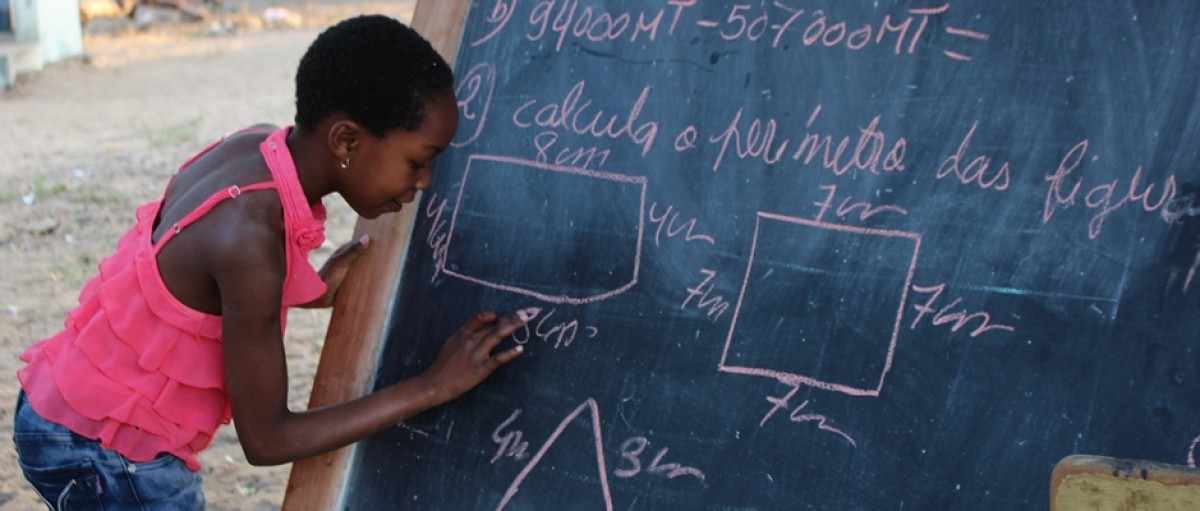 b) 94000MT-507000MT=
2) calcula o perímetro das figus
8cm
4cm
4cm
8cm
7cm
7cm
7cm
7cm
4cm
3cm